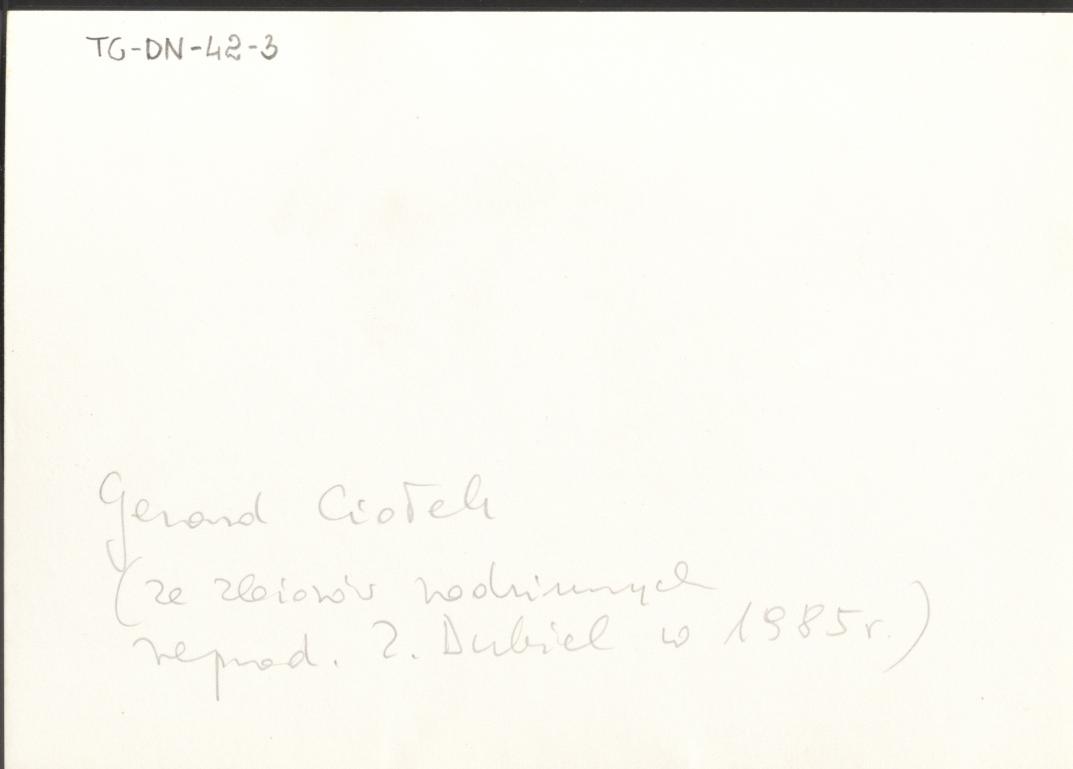 TG-DN-42-3
Gerard Ciołek
(ze zbiorów rodzinnych
reprod. Z. Dubiel w 1985 r.)